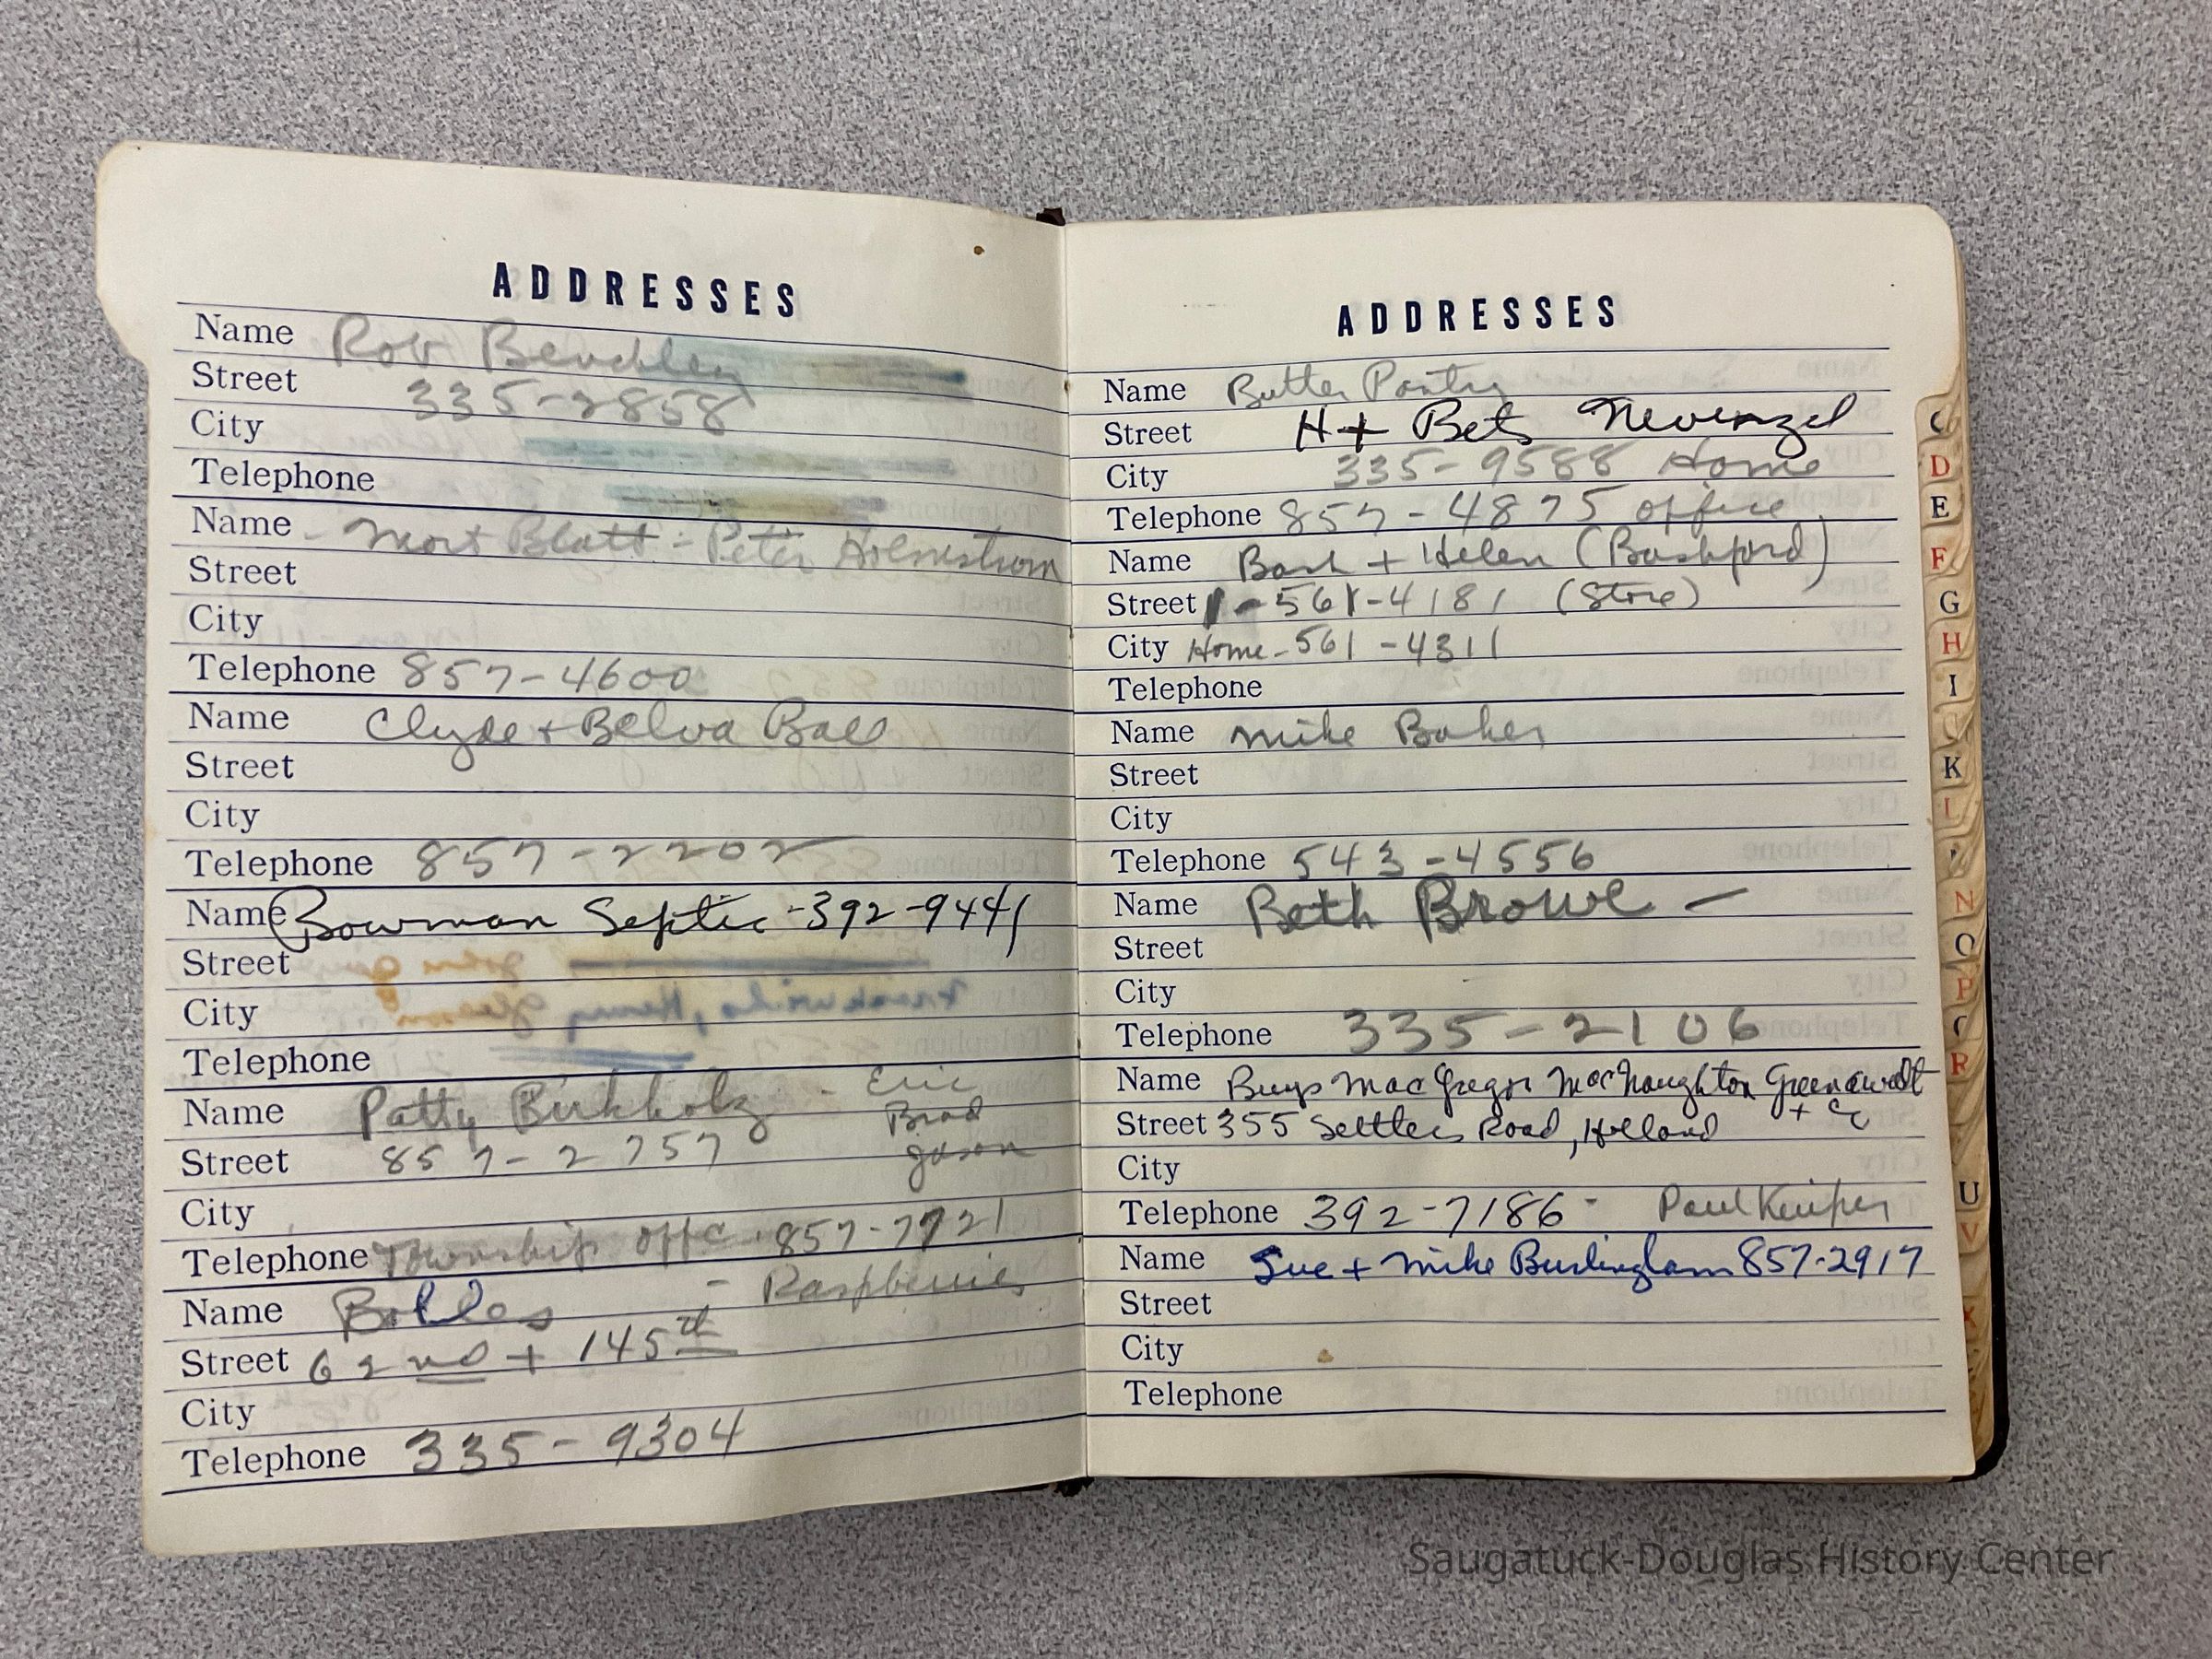 ADDRESSES
Name Rob Beuchley
Street 335-2858
City
Telephone
Name - Mort Blatt - Peter Holmstrom
Street
City
Telephone 857-4600
Name Clyde + Belva Ball
Street
City
Telephone 857-2202
Name Bowman Septic - 392-9441
Street
City
Telephone
Name Patty Birkholz - Eric
Brad
Street 857-2757 Jason
City
Telephone Township offc. 857-7721
Name Bolles - Raspberries
Street 62nd + 145th
City
Telephone 335-9304
ADDRESSES
Name Butter Pantry
Street H + Bets Nevenzel
City 335-9588 Home
Telephone 857-4875 office
Name Bash + Helen (Bashford)
Street 1-561-4181 (Store)
City Home - 561-4311
Telephone
Name Mike Baker
Street
City
Telephone 543-4556
Name Beth Browe -
Street
City
Telephone 335-2106
Name Buys MacGregor MacNaughton Greenawalt
Street 355 Settlers Road, Holland + Co
City
Telephone 392-7186 - Paul Kuiper
Name Sue + Mike Burlingham 857-2917
Street
City
Telephone
C
D
E
F
G
H
I
K
L
N
O
P
R
U
V
X
Saugatuck-Douglas History Center